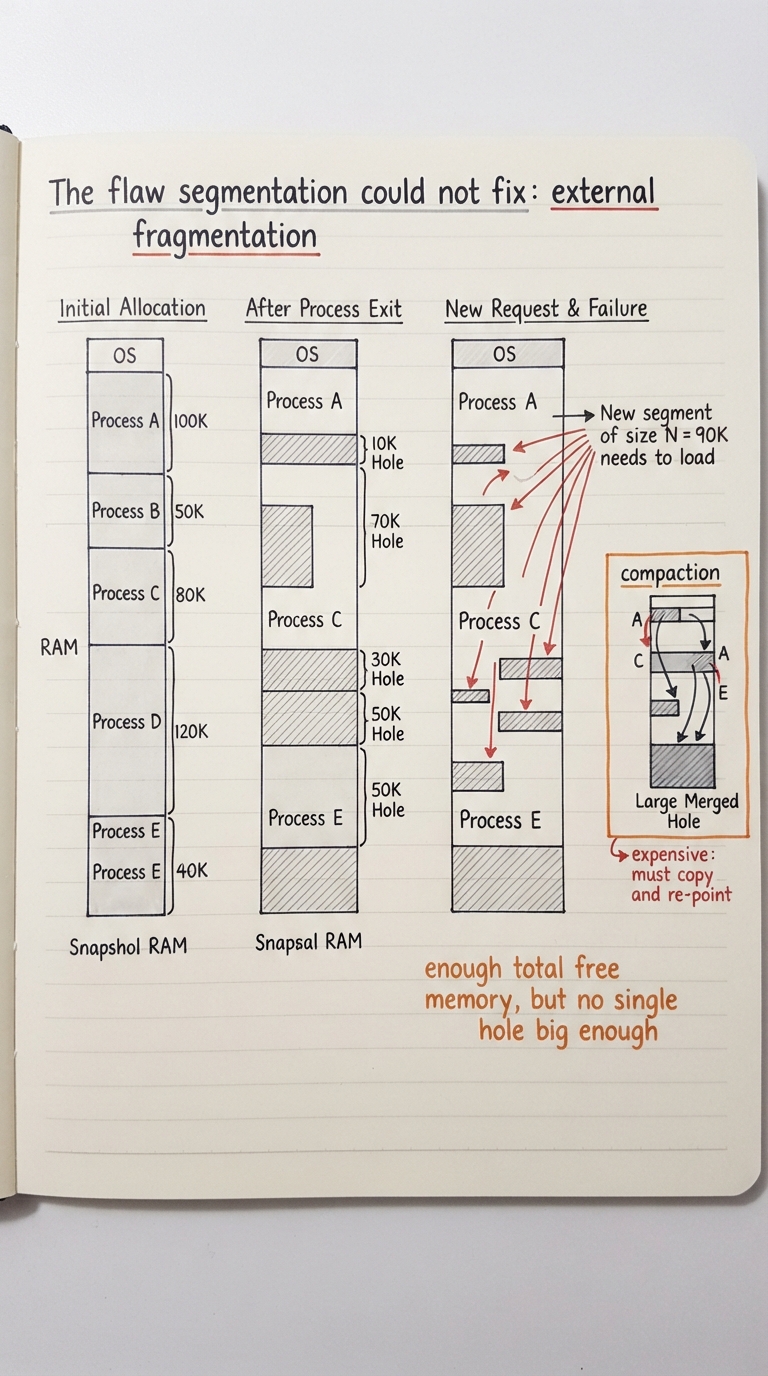 The flaw segmentation could not fix: external
fragmentation
Initial Allocation
OS
Process A
100K
Process B
50K
Process C
80K
RAM
Process D
120K
Process E
Process E
40K
Snapshol RAM
After Process Exit
OS
Process A
10K
Hole
70K
Hole
Process C
30K
Hole
50K
Hole
50K
Hole
Process E
Snapsal RAM
New Request & Failure
OS
Process A
New segment
of size N = 90K
needs to load
Process C
Process E
compaction
A
C
A
E
Large Merged
Hole
expensive:
must copy
and re-point
enough total free
memory, but no single
hole big enough